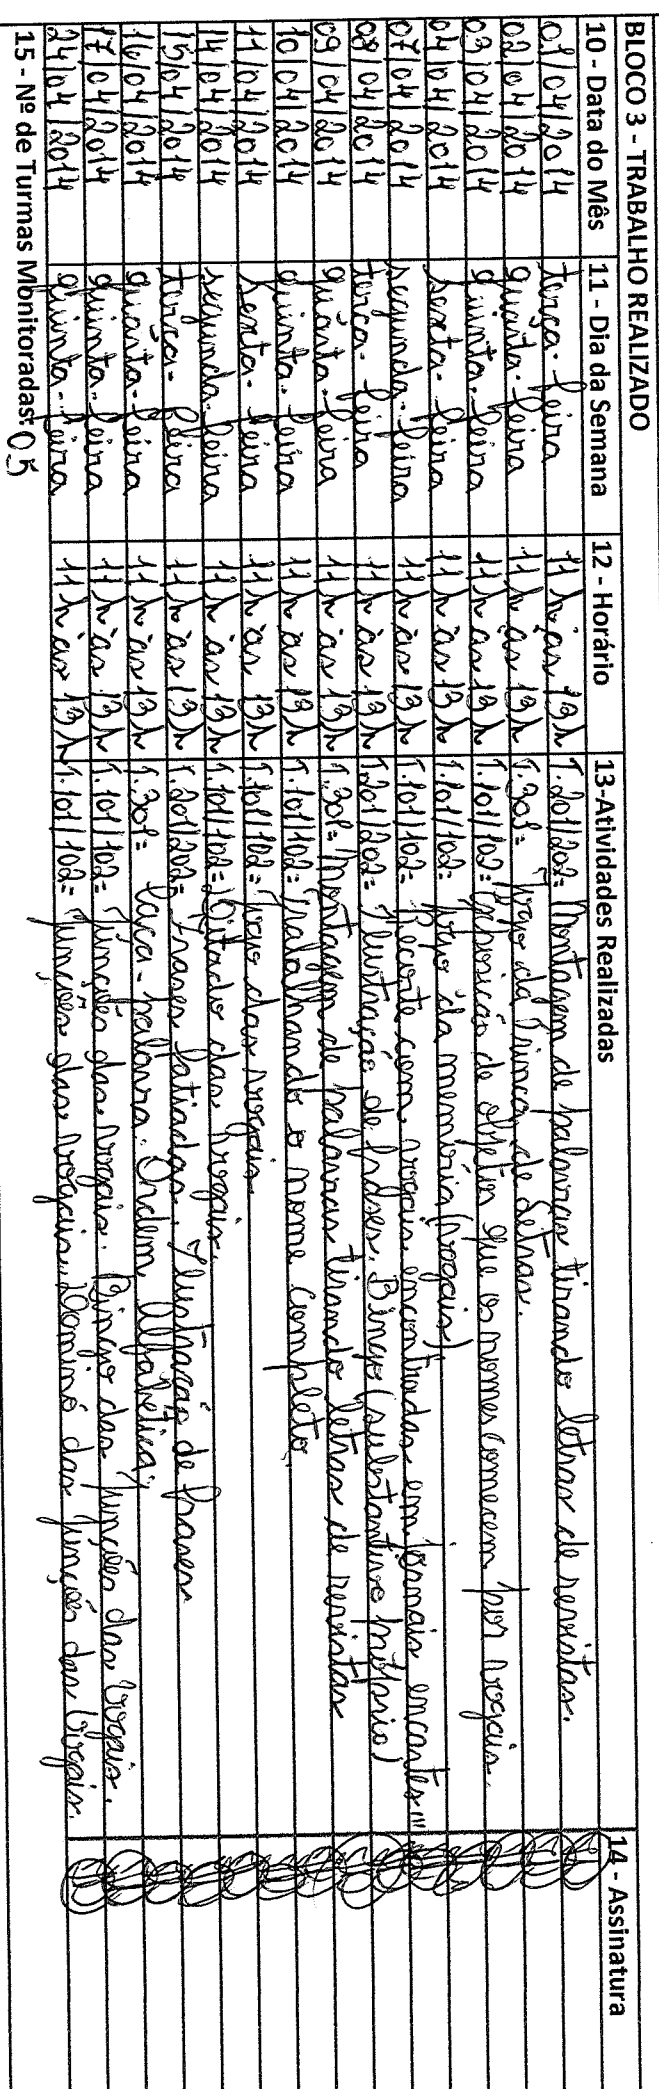 BLOCO 3 - TRABALHO REALIZADO
10 - Data do Mês 11 - Dia da Semana 12 - Horário 13-Atividades Realizadas 14 - Assinatura
01/04/2014 terça-feira 11h às 13h T.201/202= Montagem de palavras tirando letras de revistas.
02/04/2014 quarta-feira 11h às 13h T.301= Jogo da Trinca de Letras.
03/04/2014 quinta-feira 11h às 13h T.101/102= Exposição de objetos que os nomes comecem por vogais.
04/04/2014 sexta-feira 11h às 13h T.101/102= Jogo da memória (vogais)
07/04/2014 segunda-feira 11h às 13h T.101/102= Recorte com vogais encontradas em jornais encartes"
08/04/2014 terça-feira 11h às 13h T.201/202= Ilustração de frases. Bingo (substantivo próprio)
09/04/2014 quarta-feira 11h às 13h T.301= Montagem de palavras tirando letras de revistas
10/04/2014 quinta-feira 11h às 13h T.101/102= Trabalhando o nome completo.
11/04/2014 sexta-feira 11h às 13h T.101/102= Jogo das vogais
14/04/2014 segunda-feira 11h às 13h T.101/102= Ditado das vogais.
15/04/2014 terça-feira 11h às 13h T.201/202= Frases fatiadas. Ilustração de frases
16/04/2014 quarta-feira 11h às 13h T.301= Caça-palavra. Ordem Alfabética.
17/04/2014 quinta-feira 11h às 13h T.101/102= Junções das vogais. Bingo das junções das vogais.
24/04/2014 quinta-feira 11h às 13h T.101/102= Junções das vogais. Dominó das junções das vogais.
15 - Nº de Turmas Monitoradas: 05